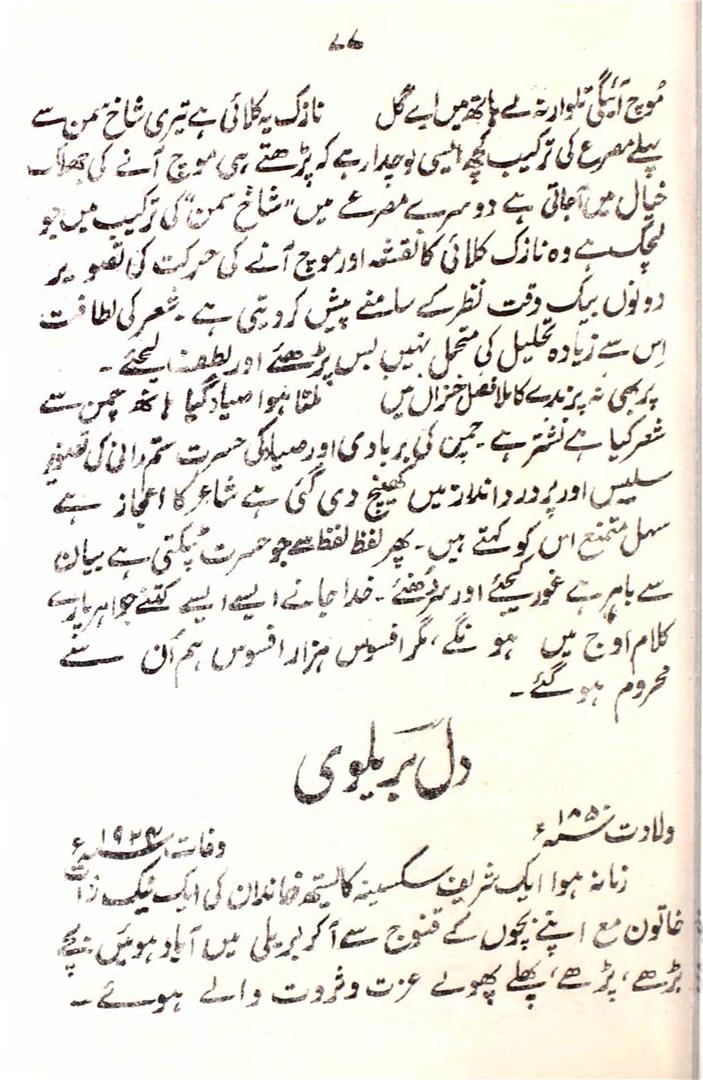 ۷۶
مُوچ آئیگی تلوار نہ لے ہاتھ میں اے گل نازک یہ کلائی ہے تیری شاخِ سمن سے
پہلے مصرع کی ترکیب کچھ ایسی لوچدار ہے کہ پڑھتے ہی موچ آنے کی جھلک
خیال میں آجاتی ہے دوسرے مصرعے میں "شاخ سمن" کی ترکیب میں جو
لچک ہے وہ نازک کلائی کا نقشہ اور موچ آنے کی حرکت کی تصویر
دونوں بیک وقت نظر کے سامنے پیش کردیتی ہے ۔ شعر کی لطافت
اِس سے زیادہ تحلیل کی متحمل نہیں بس پڑھئے اور لطف لیجئے ۔
پر بھی نہ پرندے کا ملا فصل خزاں میں ملتا ہوا صیاد گیا ہاتھ چمن سے
شعر کیا ہے نشتر ہے ۔ چمن کی بربادی اور صیاد کی حسرت ستم رانی کی تصویر
سلیس اور پر درد انداز میں کھینچ دی گئی ہے شاعر کا اعجاز ہے
سہل متمنع اس کو کہتے ہیں ۔ پھر لفظ لفظ سے جو حسرت ٹپکتی ہے بیان
سے باہر ہے غور کیجئے اور سر دھنئے ۔ خدا جانے ایسے ایسے کتنے جواہر پارے
کلام اوج میں ہونگے ، مگر افسوس ہزار افسوس ہم اُن سے
محروم ہوگئے ۔
دل بریلوی
ولادت ۱۸۵۰ء وفات
زمانہ ہوا ایک شریف سکسینہ کایستھ خاندان کی ایک نیک ذات
خاتون مع اپنے بچوں کے قنوج سے آکر بریلی میں آباد ہوئیں بچے
بڑھے ، پڑھے ، پھلے پھولے عزت و ثروت والے ہوئے ۔